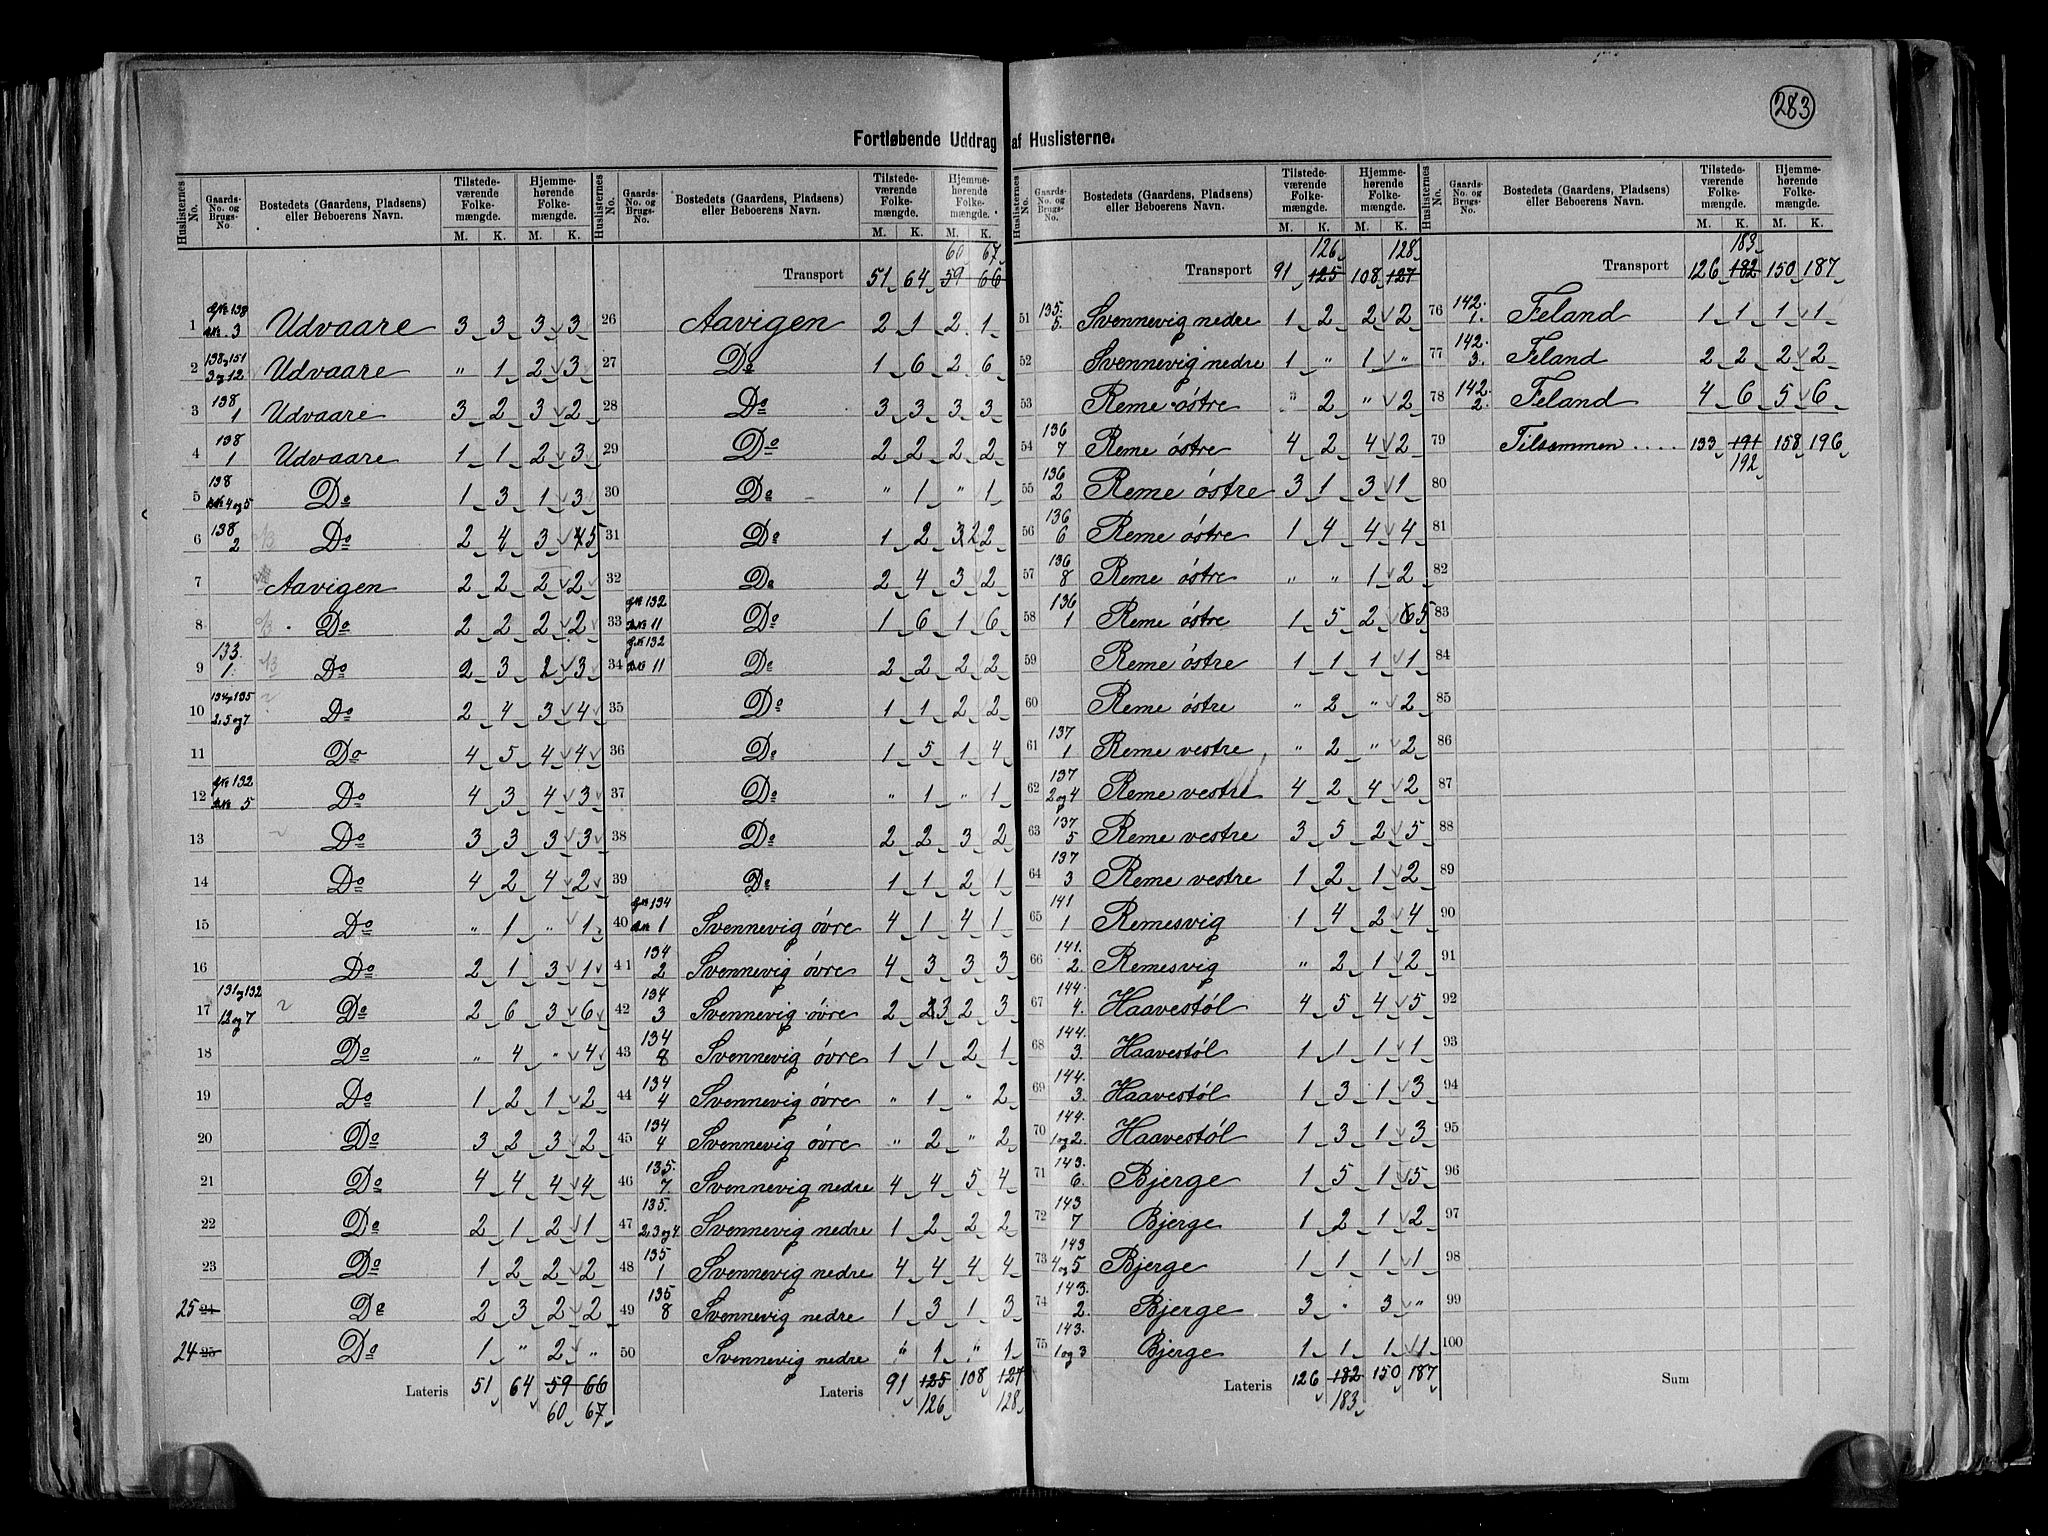 283
Fortløbende Uddrag af Huslisterne.
Huslisternes No. Gaards-No. og Brugs-No. Bostedets (Gaardens, Pladsens) eller Beboerens Navn. Tilstedeværende Folkemængde. M. K. Hjemmehørende Folkemængde. M. K.
1 GNo 138 BNo 3 Udvaare 3 3 3 3
2 138 og 151 3 og 12 Udvaare " 1 2 3
3 138 1 Udvaare 3 2 3 2
4 138 1 Udvaare 1 1 2 3
5 138 BNo 4 og 5 Do 1 3 1 3
6 138 2 Do 2 4 3 4 5
7 Aavigen 2 2 2 2
8 Do 2 2 2 2
9 133 1 Do 2 3 2 3
10 134 og 135 2, 5 og 7 Do 2 4 3 4
11 Do 4 5 4 4
12 GNo 132 BNo 5 Do 4 3 4 3
13 Do 3 3 3 3
14 Do 4 2 4 2
15 Do " 1 " 1
16 Do 2 1 3 1
17 131 og 132 12 og 7 Do 2 6 3 6
18 Do " 4 " 4
19 Do 1 2 1 2
20 Do 3 2 3 2
21 Do 4 4 4 4
22 Do 2 1 2 1
23 Do 1 2 2 2
25 24 Do 2 3 2 2
24 25 Do 1 " 2 "
Lateris 51 64 59 66
60 67
Huslisternes No. Gaards-No. og Brugs-No. Bostedets (Gaardens, Pladsens) eller Beboerens Navn. Tilstedeværende Folkemængde. M. K. Hjemmehørende Folkemængde. M. K.
60 67
Transport 51 64 59 66
26 Aavigen 2 1 2 1
27 Do 1 6 2 6
28 Do 3 3 3 3
29 Do 2 2 2 2
30 Do " 1 " 1
31 Do 1 2 3 2 2
32 Do 2 4 3 2
33 GNo 132 BNo 11 Do 1 6 1 6
34 GNo 132 BNo 11 Do 2 2 2 2
35 Do 1 1 2 2
36 Do 1 5 1 4
37 Do " 1 " 1
38 Do 2 2 3 2
39 Do 1 1 2 1
40 GNo 134 BNo 1 Svennevig övre 4 1 4 1
41 134 2 Svennevig övre 4 3 3 3
42 134 3 Svennevig övre 2 2 3 2 3
43 134 8 Svennevig övre 1 1 2 1
44 134 4 Svennevig övre " 1 " 2
45 134 4 Svennevig övre " 2 " 2
46 135. 7. Svennevig nedre 4 4 5 4
47 135. 2, 3 og 4. Svennevig nedre 1 2 2 2
48 135 1 Svennevig nedre 4 4 4 4
49 135 8 Svennevig nedre 1 3 1 3
50 Svennevig nedre " 1 " 1
Lateris 91 125 108 127
126 128
Huslisternes No. Gaards-No. og Brugs-No. Bostedets (Gaardens, Pladsens) eller Beboerens Navn. Tilstedeværende Folkemængde. M. K. Hjemmehørende Folkemængde. M. K.
126 128
Transport 91 125 108 127
51 135. 5. Svennevig nedre 1 2 2 2
52 Svennevig nedre 1 " 1 "
53 Reme östre " 2 " 2
54 136 7 Reme östre 4 2 4 2
55 136 2 Reme östre 3 1 3 1
56 136 6 Reme östre 1 4 4 4
57 136 8 Reme östre " " 1 2
58 136 1 Reme östre 1 5 2 6 5
59 Reme östre 1 1 1 1
60 Reme östre " 2 " 2
61 137 1 Reme vestre " 2 " 2
62 137 2 og 4 Reme vestre 4 2 4 2
63 137 5 Reme vestre 3 5 2 5
64 137 3 Reme vestre 1 2 1 2
65 141 1 Remesvig 1 4 2 4
66 141. 2. Remesvig " 2 1 2
67 144. 4. Haavestöl 4 5 4 5
68 144. 3. Haavestöl 1 1 1 1
69 144. 3. Haavestöl 1 3 1 3
70 144. 1 og 2. Haavestöl 1 3 1 3
71 143. 6. Bjerge 1 5 1 5
72 143 7 Bjerge 1 2 1 2
73 143 4 og 5 Bjerge 1 1 1 1
74 143. 2. Bjerge 3 " 3 "
75 143. 1 og 3 Bjerge 1 1 1 1
Lateris 126 182 150 187
183
Huslisternes No. Gaards-No. og Brugs-No. Bostedets (Gaardens, Pladsens) eller Beboerens Navn. Tilstedeværende Folkemængde. M. K. Hjemmehørende Folkemængde. M. K.
183
Transport 126 182 150 187
76 142. 1. Feland 1 1 1 1
77 142. 3. Feland 2 2 2 2
78 142. 2. Feland 4 6 5 6
79 Tilsammen .... 133 191 158 196
192
80
81
82
83
84
85
86
87
88
89
90
91
92
93
94
95
96
97
98
99
100
Sum